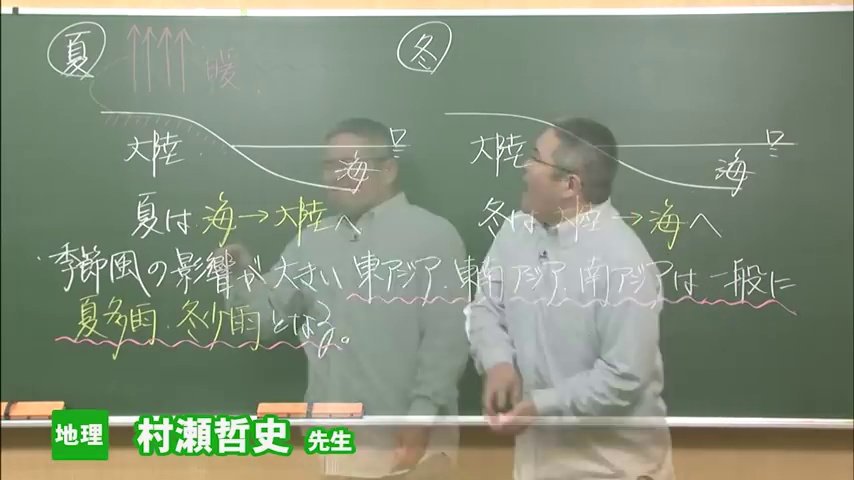 夏 冬
暖
大陸 海 大陸 海
夏は 海→大陸へ 冬は 大陸→海へ
・季節風の影響が大きい 東アジア、東南アジア、南アジアは一般に
夏多雨、冬少雨となる。
地理 村瀬哲史 先生